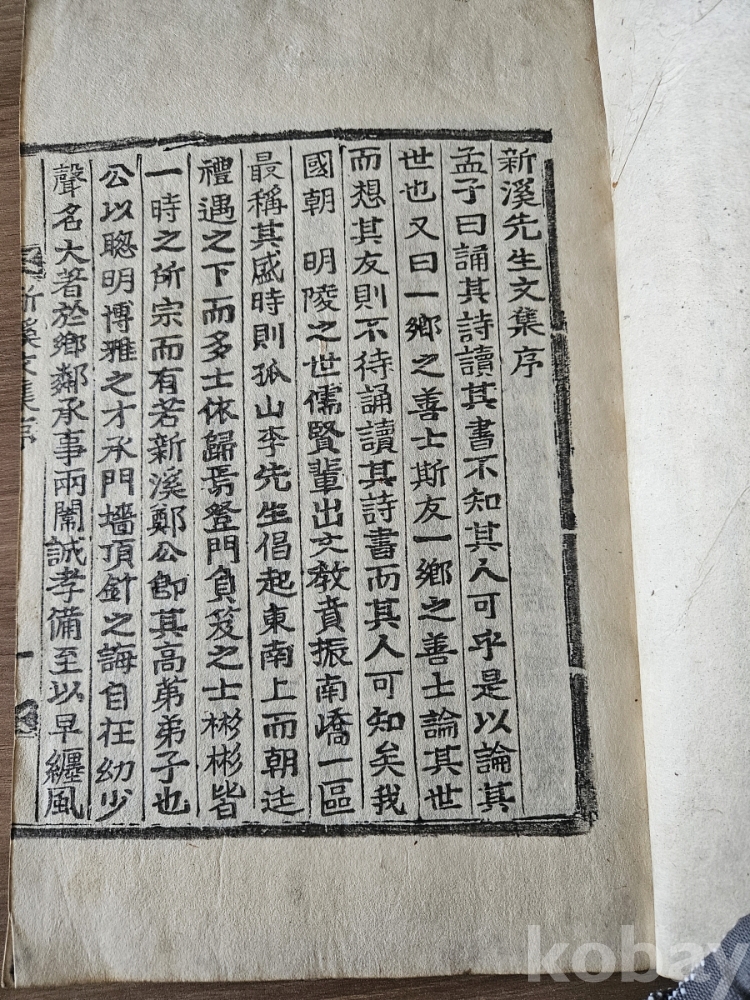 新溪先生文集序
孟子曰誦其詩讀其書不知其人可乎是以論其
世也又曰一鄉之善士斯友一鄉之善士論其世
而想其友則不待誦讀其詩書而其人可知矣我
國朝 明陵之世儒賢輩出文教賁振南嶠一區
最稱其盛時則孤山李先生倡起東南上而朝廷
禮遇之下而多士依歸焉登門負笈之士彬彬皆
一時之所宗而有若新溪鄭公卽其高弟弟子也
公以聰明博雅之才承門墻頂針之誨自在幼少
聲名大著於鄉鄰承事兩闈誠孝備至以早纏風
新溪文集序
一
kobay